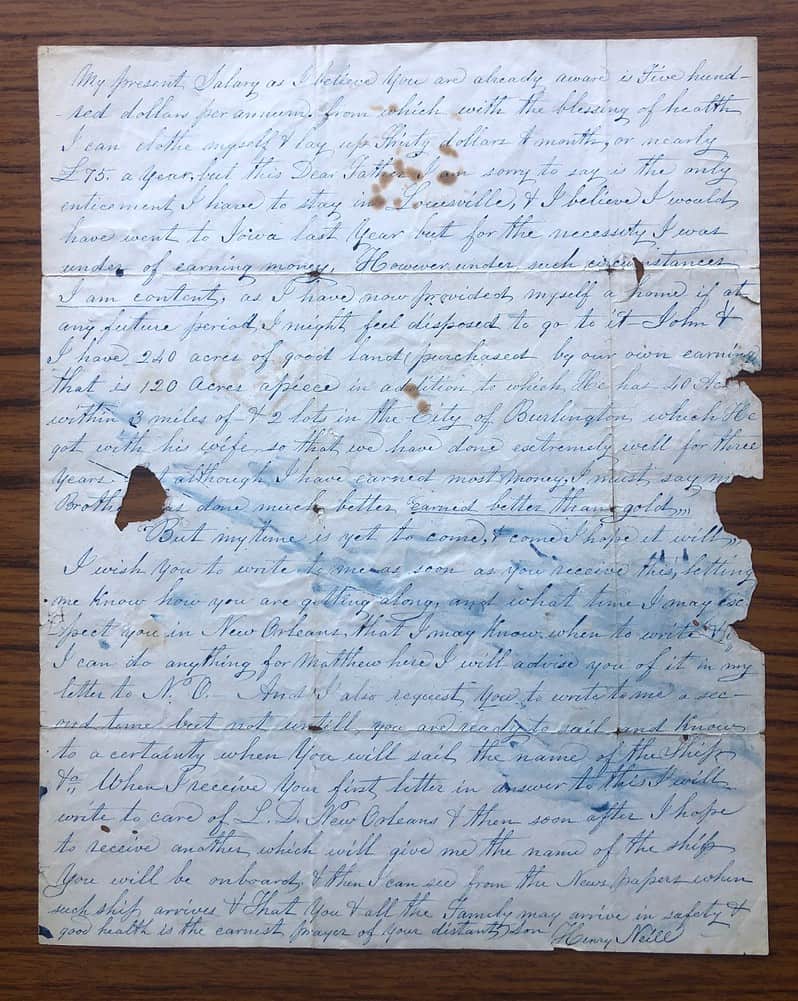 My present Salary as I believe You are already aware is Five hund-
-red dollars per annum, from which with the blessing of health
I can clothe myself & lay up Thirty dollars & month, or nearly
£75. a Year, but this Dear Father I am sorry to say is the only
enticement I have to stay in Louisville, & I believe I would
have went to Iowa last Year but for the necessity I was
under of earning money. However under such circumstances
I am content, as I have now provided myself a home if at
any future period, I might feel disposed to go to it - John &
I have 240 acres of good land purchased by our own earning
that is 120 Acres apiece in addition to which He has 40 Ac
within 3 miles of - & 2 lots in the City of Burlington which He
got with his wife, so that we have done extremely well for three
Years although I have earned most money, I must say m
Broth as done much better, earned better than gold,,,
But my time is yet to come, & come I hope it will,,,
I wish You to write to me as soon as you receive this, letting
me know how you are getting along, and what time I may ex
-pect you in New Orleans, that I may know when to write &
I can do anything for Matthew here I will advise you of it in my
letter to N. O. - And I also request You to write to me a sec-
-ond time but not untill you are ready to sail and know
to a certainty when You will sail the name of the Ship
&c. When I receive Your first letter in answer to this I will
write to care of L. D. New Orleans & then soon after I hope
to receive another which will give me the name of the ship
You will be onboard, & then I can see from the News papers when
such ship arrives & That You & all the Family may arrive in safety &
good health is the earnest prayer of Your distant, son Henry Neill